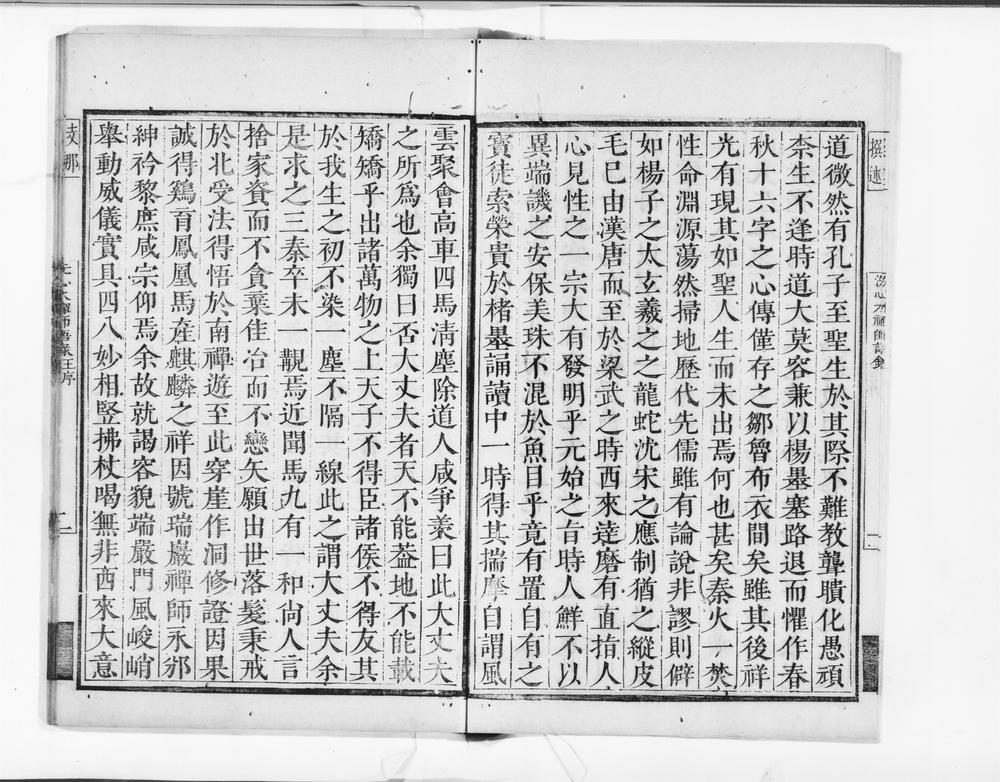 道微然有孔子至聖生於其際不難教聾聵化愚頑
柰生不逢時道大莫容兼以楊墨塞路退而懼作春
秋十六字之心傳僅存之鄒魯布衣間矣雖其後祥
光有現其如聖人生而未出焉何也甚矣秦火一焚
性命淵源蕩然掃地歷代先儒雖有論說非謬則僻
如楊子之太玄羲之之龍蛇沈宋之應制猶之縱皮
毛已由漢唐而至於梁武之時西來達磨有直指人
心見性之一宗大有發明乎元始之旨時人鮮不以
異端譏之安保美珠不混於魚目乎竟有置自有之
寶徒索榮貴於楮墨誦讀中一時得其揣摩自謂風
雲聚會高車四馬清塵除道人咸爭羨曰此大丈夫
之所爲也余獨曰否大丈夫者天不能蓋地不能載
矯矯乎出諸萬物之上天子不得臣諸侯不得友其
於我生之初不染一塵不隔一線此之謂大丈夫余
是求之三秦卒未一覯焉近聞馬九有一和尚人言
捨家資而不貪棄佳冶而不戀矢願出世落髮秉戒
於北受法得悟於南禪遊至此穿崖作洞修證因果
誠得鷄育鳳凰馬產麒麟之祥因號瑞巖禪師永邠
紳衿黎庶咸宗仰焉余故就謁容貌端嚴門風峻峭
舉動威儀實具四八妙相豎拂杖喝無非西來大意
撰述
支那